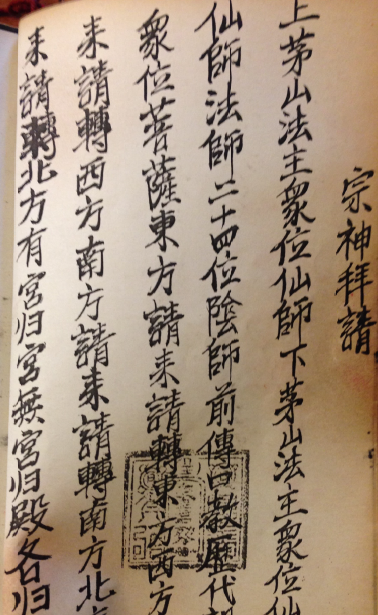 宗神拜請
上茅山法主衆位仙師下茅山法主衆位仙
仙師法師二十四位陰師前傳口教歷代
衆位菩薩東方請来請轉東方西方
来請轉西方南方請来請轉南方北
来請轉北方有宮归宮無宮归殿各归